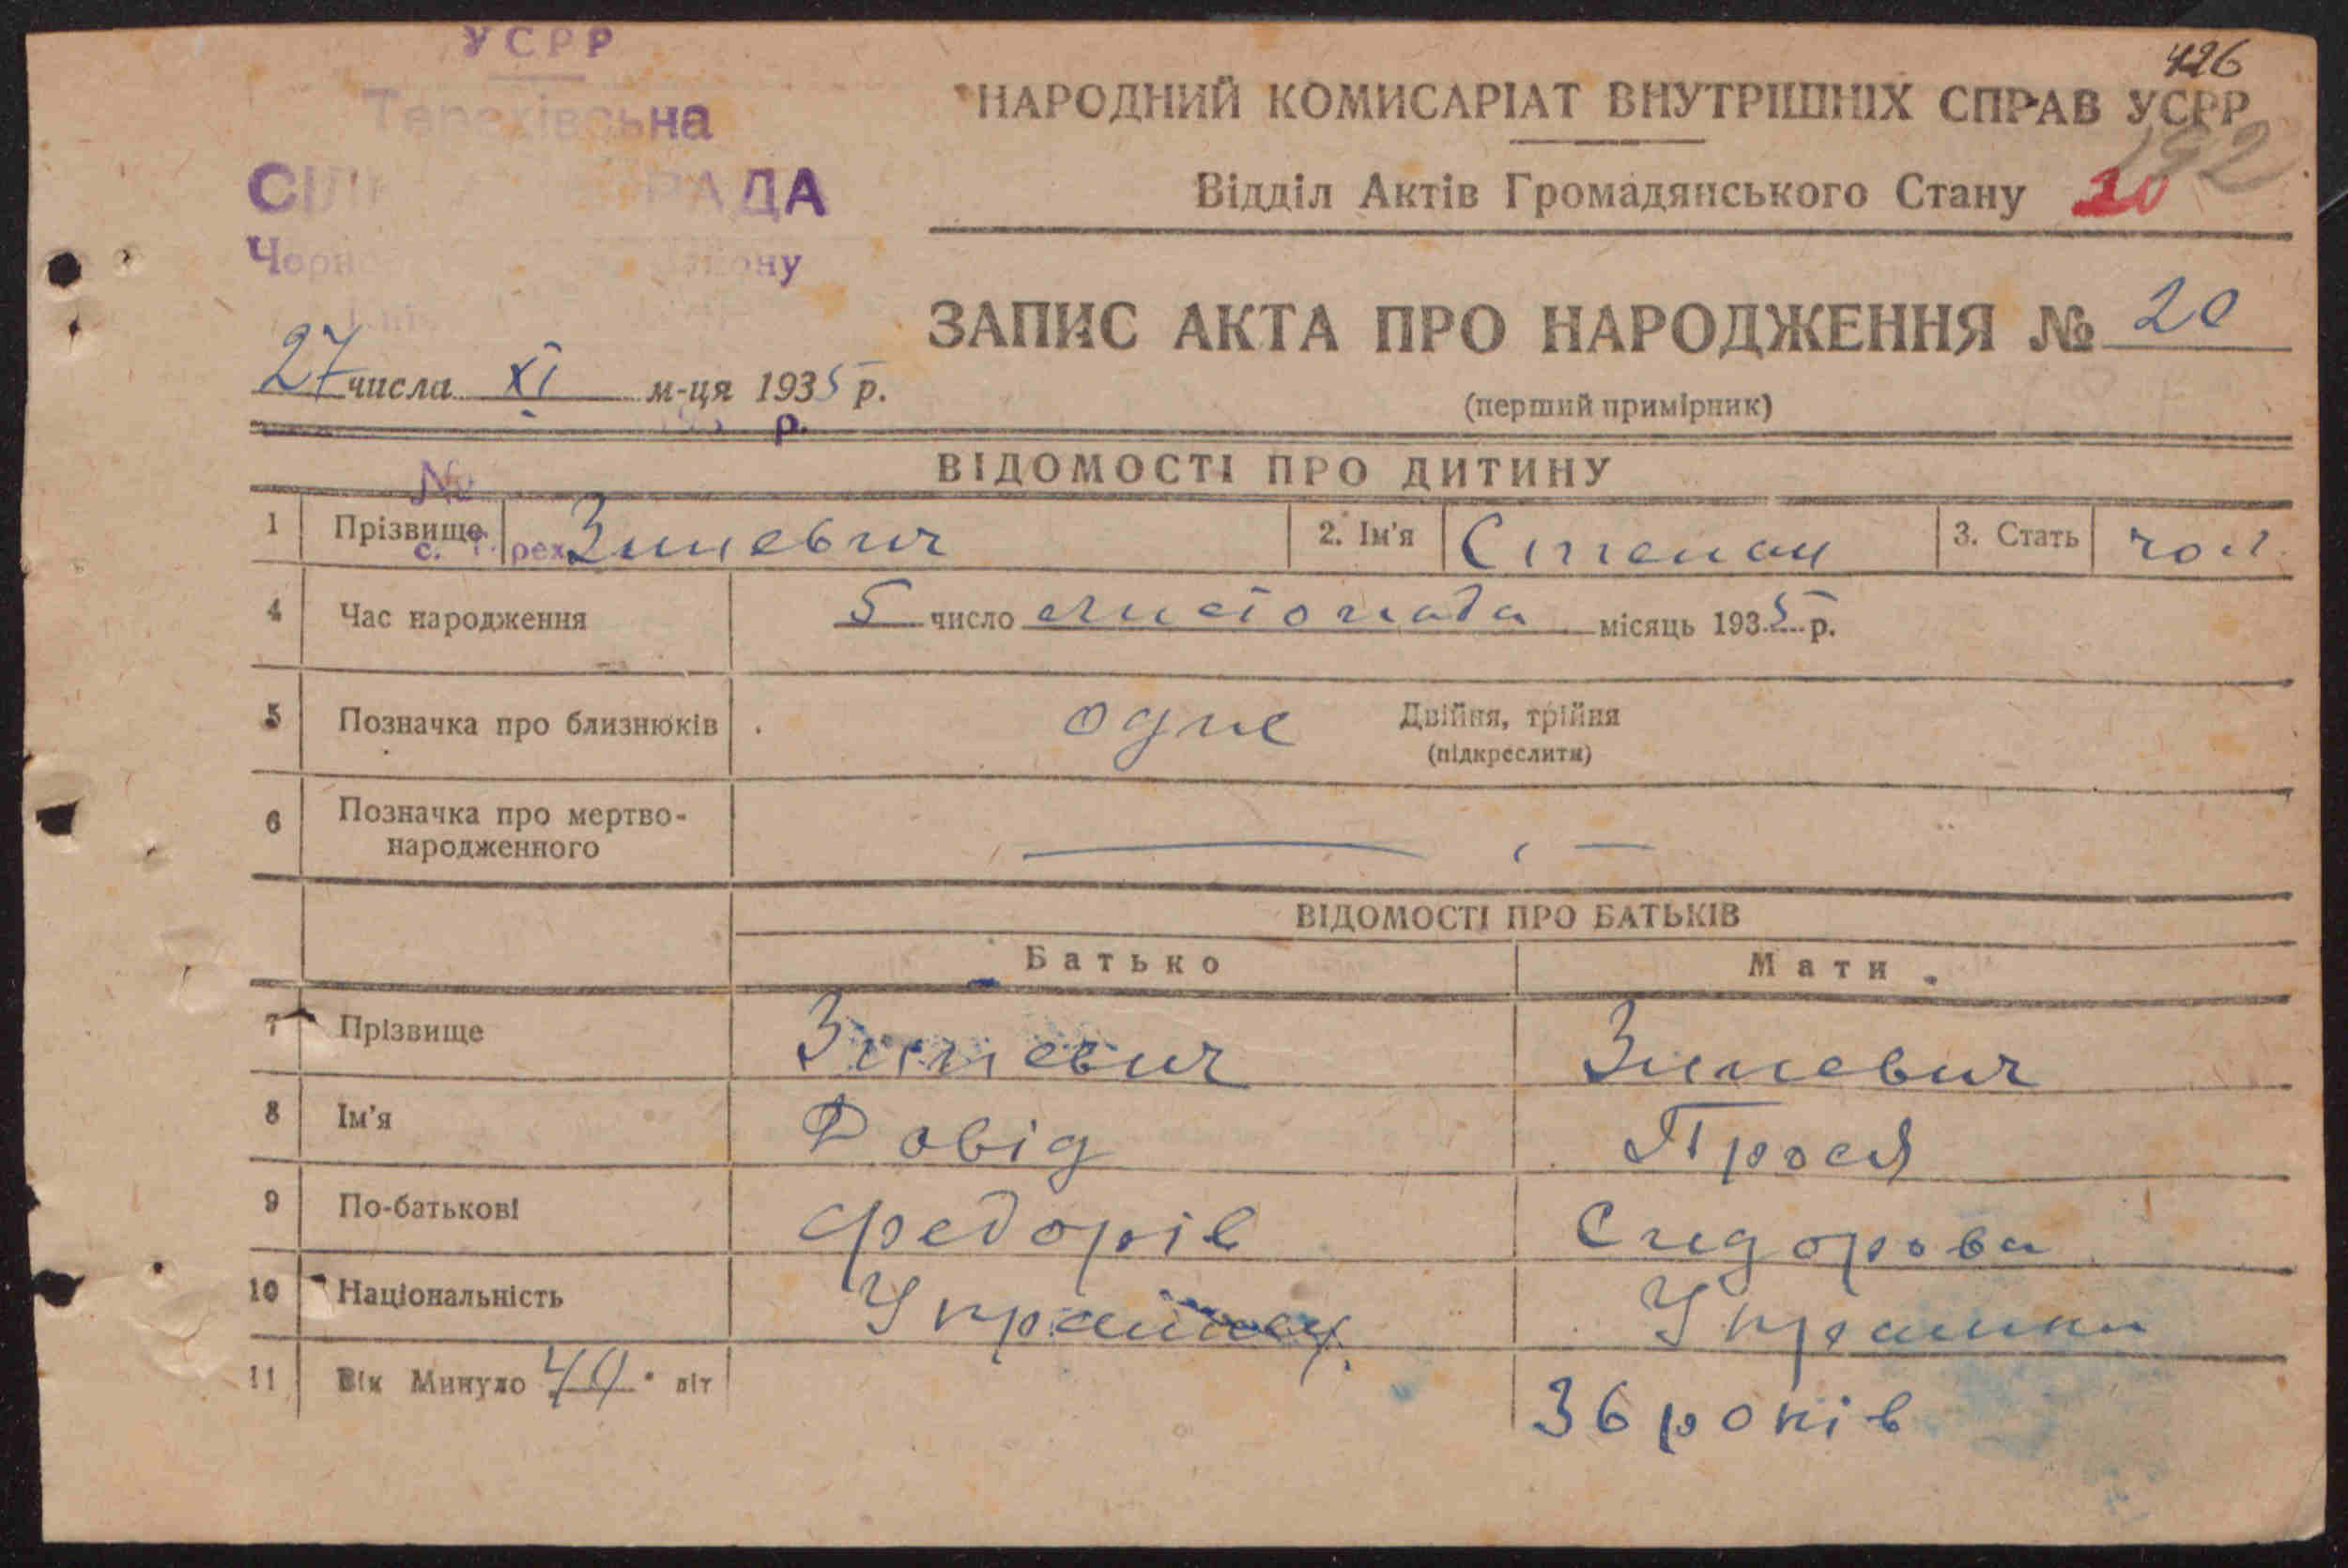 УСРР
Терехівська
РАДА
426
НАРОДНИЙ КОМИСАРІАТ ВНУТРІШНІХ СПРАВ УСРР
192
Відділ Актів Громадянського Стану 20
ЗАПИС АКТА ПРО НАРОДЖЕННЯ № 20
27 числа XI м-ця 1935 р.
(перший примірник)
р.
ВІДОМОСТІ ПРО ДИТИНУ
№
1 Прізвище Зиневич 2. Ім'я Степан 3. Стать чол.
с. Терех
4 Час народження 5 число листопада місяць 1935 р.
5 Позначка про близнюків одне Двійня, трійня
(підкреслити)
6 Позначка про мертво-
народженного
ВІДОМОСТІ ПРО БАТЬКІВ
Батько Мати
7 Прізвище Зиневич Зиневич
8 Ім'я Довід Прося
9 По-батькові Федорів Сидорова
10 Національність Українец Украинка
11 Вік Минуло 40 літ 36 років